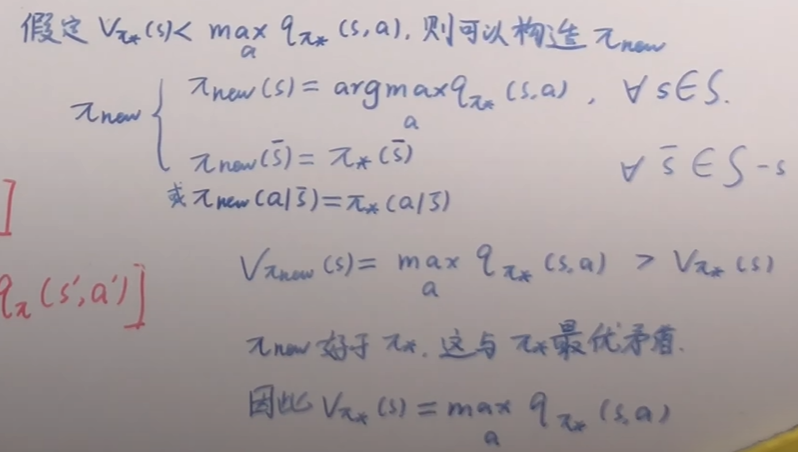 假定 Vπ*(s)< max_a qπ*(s,a), 则可以构造 πnew
πnew { πnew(s) = argmax_a qπ*(s,a), ∀ s∈S.
πnew(s̄) = π*(s̄) ∀ s̄ ∈ S-s
或 πnew(a|s̄) = π*(a|s̄)
]
Vπnew(s) = max_a qπ*(s,a) > Vπ*(s)
qπ(s',a')]
πnew 好于 π*, 这与 π* 最优矛盾.
因此 Vπ*(s) = max_a qπ*(s,a)